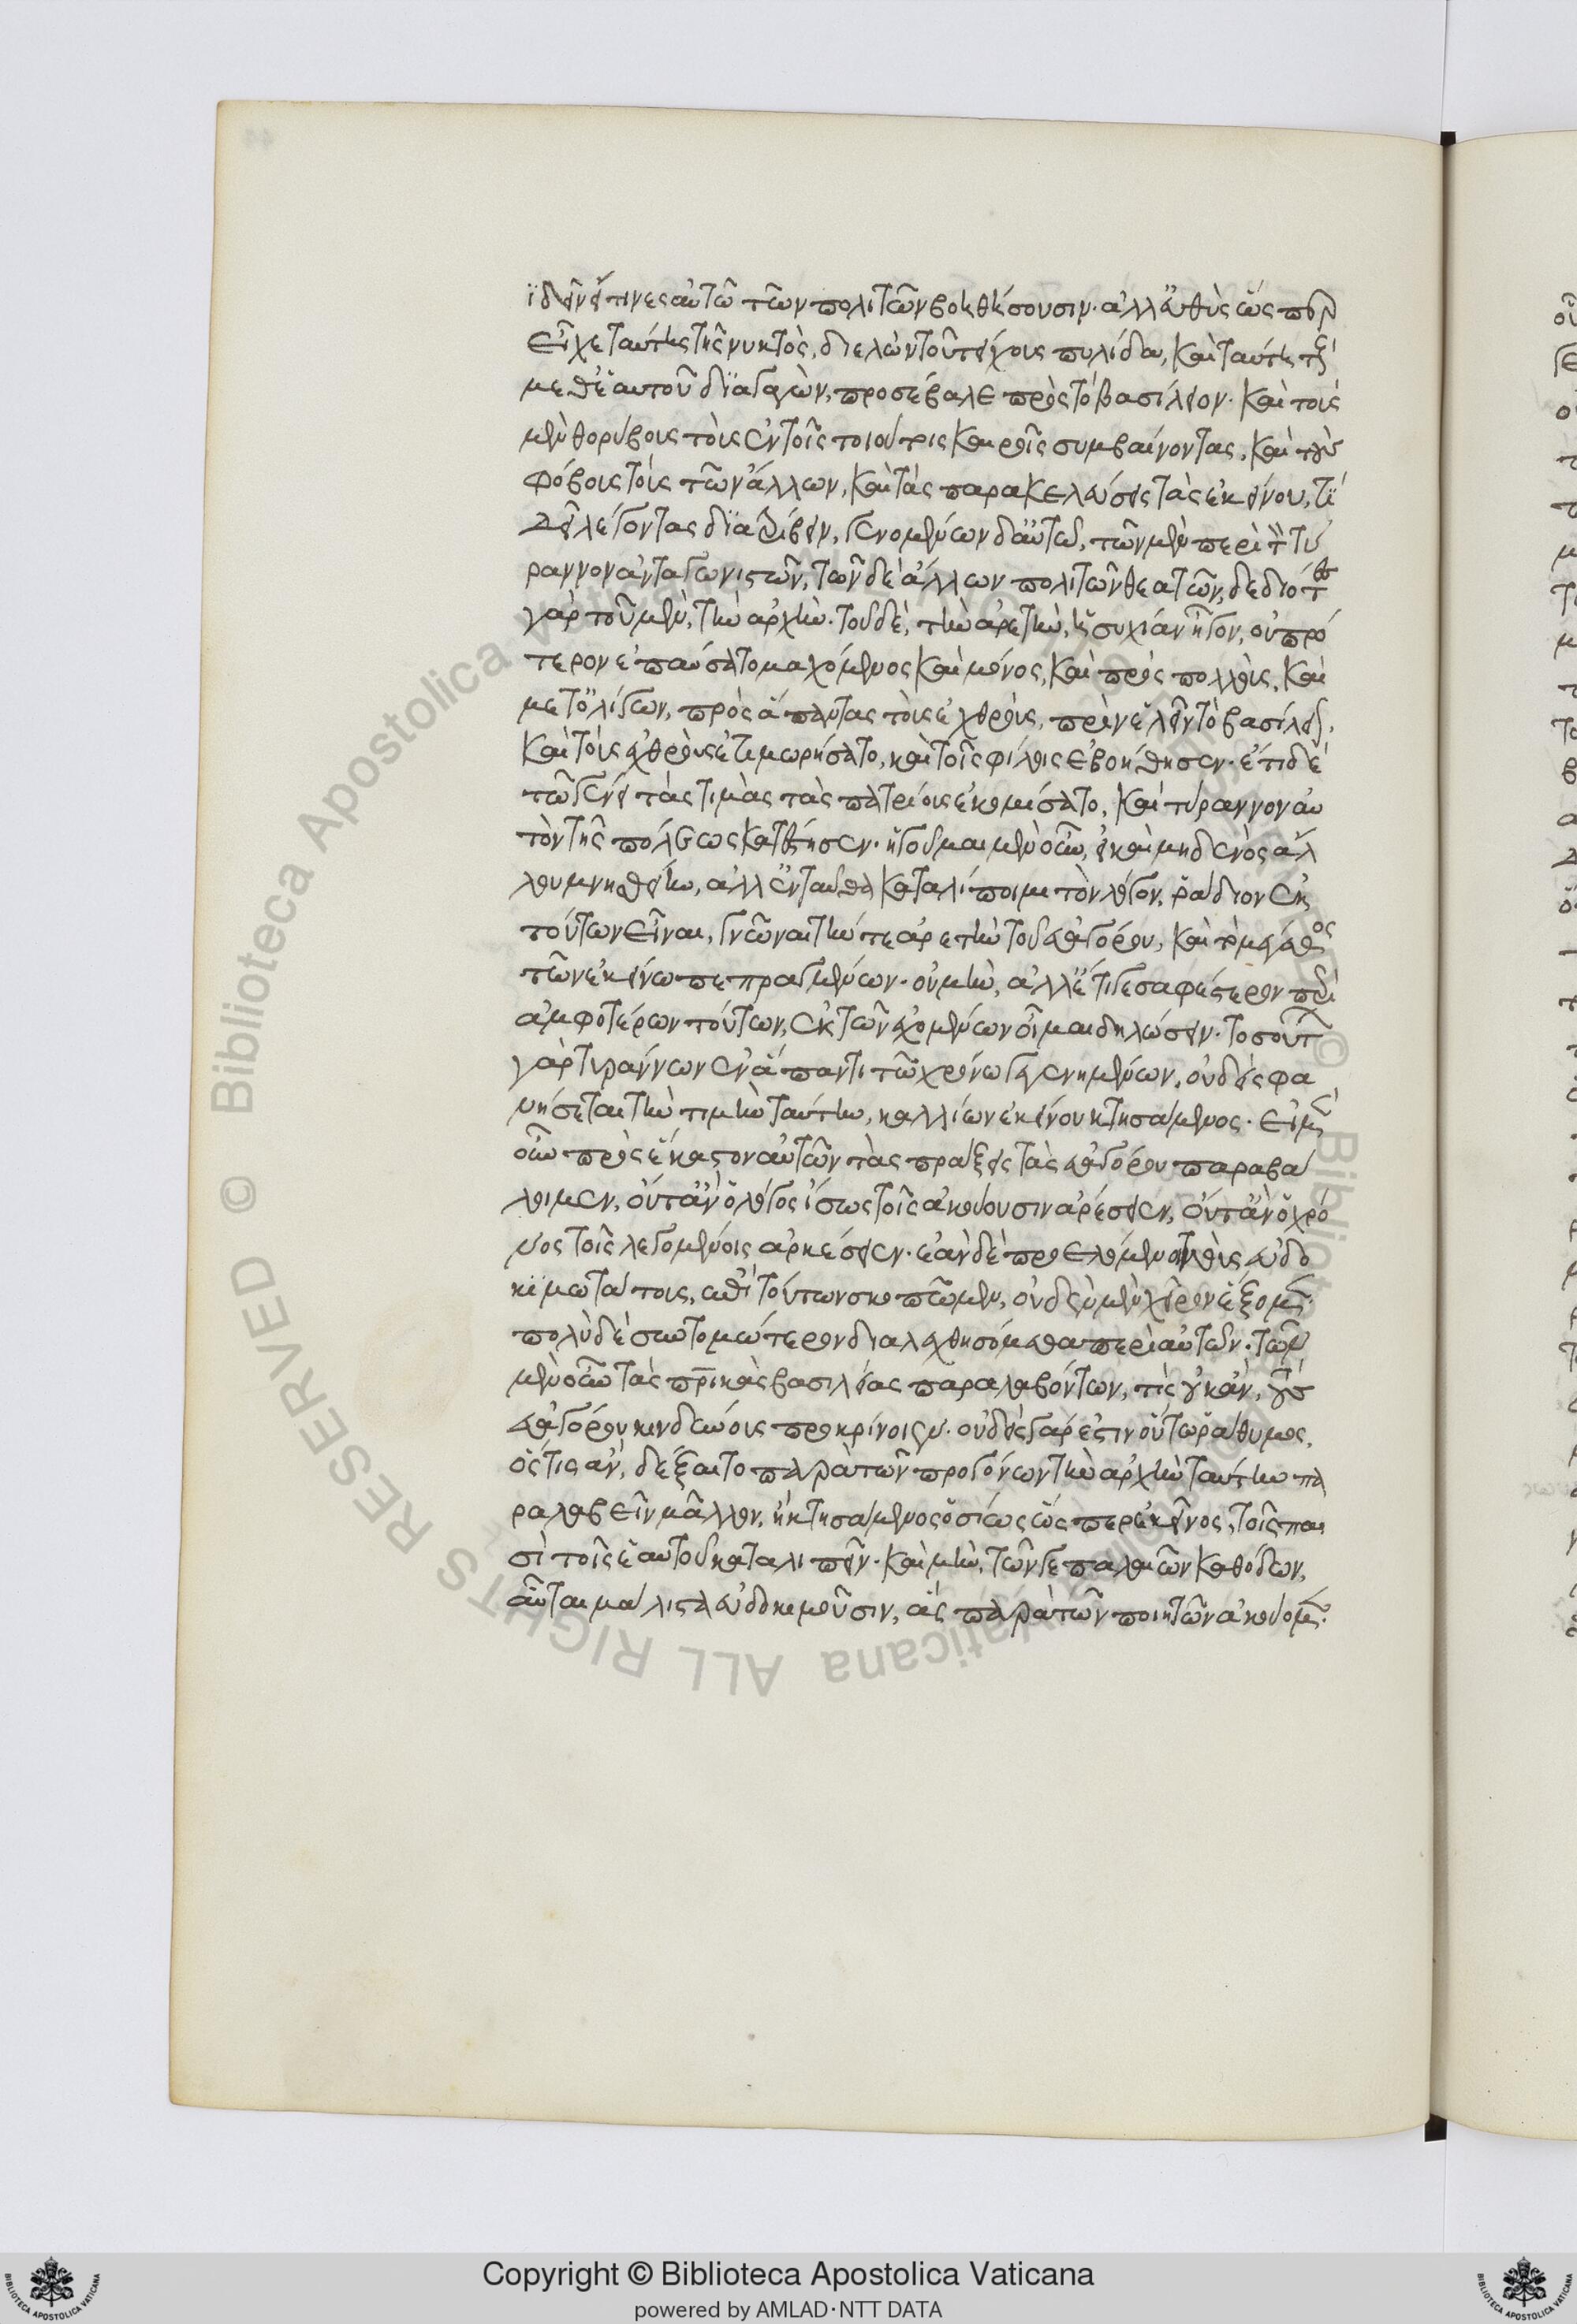 ϊδεῖν εἴ τινες αὐτῶ τῶν πολιτῶν βοηθήσουσιν· ἀλλ' εὐθὺς ὥσπερ
εἶχε ταύτης τῆς νυκτὸς, διελὼν τοῦ τείχους πυλίδα, καὶ ταύτη τοὺς
μεθ' ἑαυτοῦ διαγαγὼν, προσέβαλε πρὸς τὸ βασίλειον· καὶ τοὺς
μὲν θορύβους τοὺς ἐν τοῖς τοιούτοις καιροῖς συμβαίνοντας, καὶ τοὺς
φόβους τοὺς τῶν ἄλλων, καὶ τὰς παρακελεύσεις τὰς ἐκείνου, τί
δεῖ λέγοντας διατρίβειν, γενομένων δ' αὐτῶ, τῶν μὲν περὶ τὸν τύ
ραννον ἀνταγωνιστῶν, τῶν δὲ ἄλλων πολιτῶν θεατῶν, δεδιότες
γὰρ τοῦ μὲν, τὴν ἀρχὴν· τοῦ δὲ, τὴν ἀρετὴν, ἡσυχίαν ἦγον, οὐ πρό
τερον ἐπαύσατο μαχόμενος καὶ μόνος, καὶ πρὸς πολλοὺς, καὶ
μετ' ὀλίγων, πρὸς ἅπαντας τοὺς ἐχθροὺς, πρὶν ἑλεῖν τὸ βασίλειον,
καὶ τοὺς ἐχθροὺς ἐτιμωρήσατο, καὶ τοῖς φίλοις ἐβοήθησεν· ἔτι δὲ
τῶ γένει τὰς τιμὰς τὰς πατρίους ἐκομίσατο, καὶ τύραννον αὑ
τὸν τῆς πόλεως κατέστησεν· ἡγοῦμαι μὲν οὖν, εἰ καὶ μηδενὸς ἄλ
λου μνησθείην, ἀλλ' ἐνταῦθα καταλίποιμι τὸν λόγον, ῥάδιον ἐκ
τούτων εἶναι, γνῶναι τήν τε ἀρετὴν τοῦ εὐαγόρου, καὶ τὸ μέγεθος
τῶν ἐκείνω πεπραγμένων· οὐ μὴν, ἀλλ' ἔτι γε σαφέστερον περὶ
ἀμφοτέρων τούτων, ἐκ τῶν ἐχομένων οἶμαι δηλώσειν· τοσούτων
γὰρ τυράννων ἐν ἅπαντι τῶ χρόνω γεγενημένων, οὐδεὶς φα
νήσεται τὴν τιμὴν ταύτην, κάλλιον ἐκείνου κτησάμενος· εἰ μὲν
οὖν πρὸς ἕκαστον αὐτῶν τὰς πράξεις τὰς εὐαγόρου παραβά
λοιμεν, οὔτ' ἂν ὁ λόγος ἴσως τοῖς ἀκούουσιν ἀρέσειεν, οὔτ' ἂν ὁ χρό
νος τοῖς λεγομένοις ἀρκέσειεν· ἐὰν δὲ προελόμενοι τοὺς εὐδο
κιμωτάτους, ἐπὶ τούτων σκοπῶμεν, οὐδὲν μὲν χεῖρον ἕξομεν·
πολὺ δὲ συντομώτερον διαλεχθησόμεθα περὶ αὐτῶν· τῶν
μὲν οὖν τὰς πρικὰς βασιλείας παραλαβόντων, τίς οὐκ ἂν, τοὺς
εὐαγόρου κινδύνους προκρίνοιεν· οὐδεὶς γάρ ἐστιν οὕτω ῥάθυμος,
ὅστις ἂν, δέξαιτο παρὰ τῶν προγόνων τὴν ἀρχὴν ταύτην πα
ραλαβεῖν μᾶλλον, ἢ κτησάμενος ὁσίως ὥσπερ ἐκεῖνος, τοῖς παι
σὶ τοῖς ἑαυτοῦ καταλιπεῖν· καὶ μὴν, τῶν γε παλαιῶν καθόδων,
αὗται μάλιστα εὐδοκιμοῦσιν, ἃς παρὰ τῶν ποιητῶν ἀκούομεν·
Copyright © Biblioteca Apostolica Vaticana
powered by AMLAD·NTT DATA